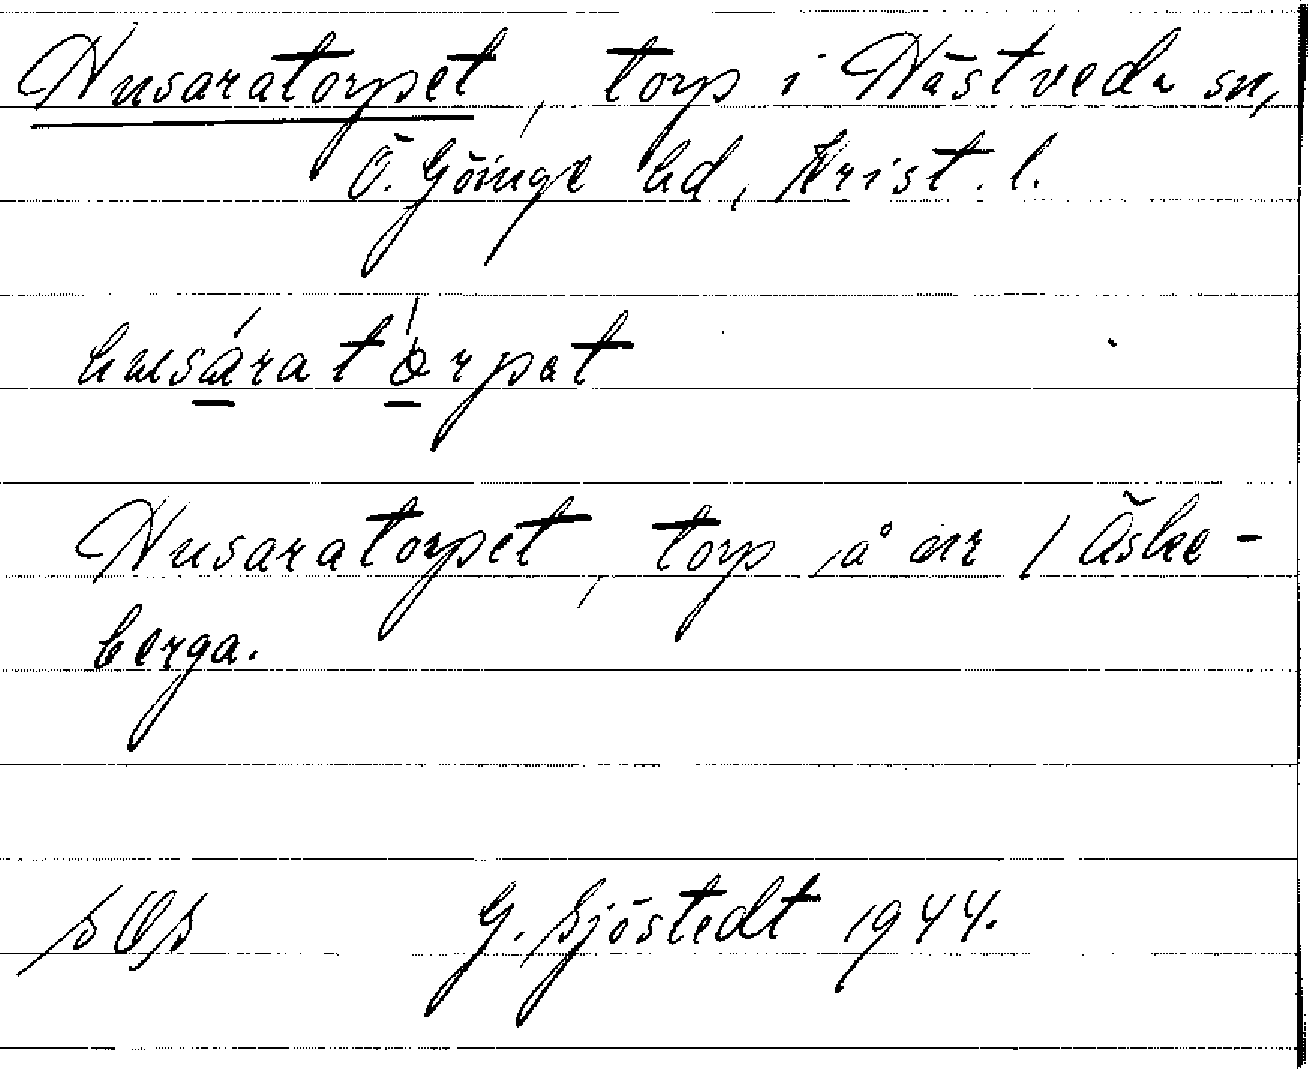 Husaratorpet, torp i Hästveda sn,
Ö. Göinge hd, Krist. l.
husáratórpet
Husaratorpet, torp å nr 1 Äske-
berga.
G. Sjöstedt 1944.